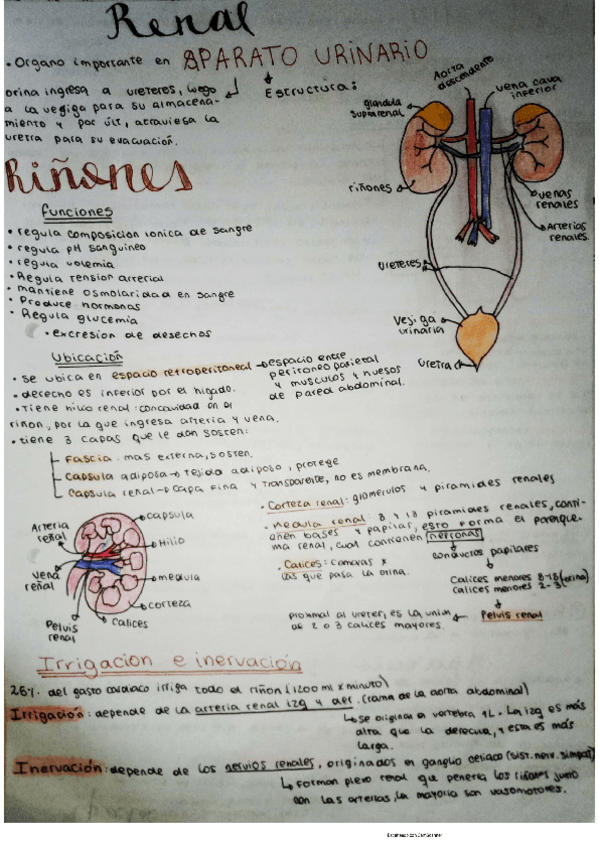 Renal
• Organo importante en APARATO URINARIO
orina ingresa a ureteres, luego
a la vegiga para su almacena-
miento y por últ, atraviesa la
uretra para su evacuación.
Estructura:
Aorta
descendente
vena cava
inferior
glandula
suprarrenal
riñones
venas
renales
Arterias
renales.
Ureteres
Vejiga
urinaria
Uretra
Riñones
funciones
• regula composicion ionica de sangre
• regula pH sanguineo
• regula volemia
• Regula tension arterial
• mantiene osmolaridad en sangre
• Produce hormonas
• Regula glucemia
• excresion de desechos
Ubicación
• se ubica en espacio retroperitoneal → espacio entre
peritoneo parietal
y musculos y huesos
de pared abdominal.
• derecho es inferior por el higado.
• Tiene hilio renal: concavidad en el
riñon, por la que ingresa arteria y vena.
• tiene 3 capas que le dan sosten:
Fascia. mas externa, sosten.
Capsula adiposa → tejido adiposo, protege
Capsula renal → Capa fina y transparente, no es membrana.
Arteria
renal
vena
renal
Pelvis
renal
capsula
Hilio
medula
corteza
Calices
• Corteza renal: glomerulos y piramides renales
• medula renal: 8 y 18 piramides renales, conti-
enen bases y papilar, esto forma el parenqui-
ma renal, cual contienen nefronas
conductos papilares
• Calices: camaras x
las que pasa la orina.
Calices menores 8-18 (orina)
calices menores 2-3
Pelvis renal
proximal al ureter, es la union
de 2 o 3 calices mayores.
Irrigacion e inervación
26%. del gasto cardiaco irriga todo el riñon (1200 ml x minuto)
Irrigación: depende de la arteria renal izq y der. (rama de la aorta abdominal)
se origina a vertebra 1L. La izq es más
alta que la derecha, y esta es más
larga.
Inervación: depende de los nervios renales, originados en ganglio celiaco (sist. nerv. simpat)
forman plexo renal que penetra los riñones junto
con las arterias, la mayoria son vasomotores.
Escaneado con CamScanner